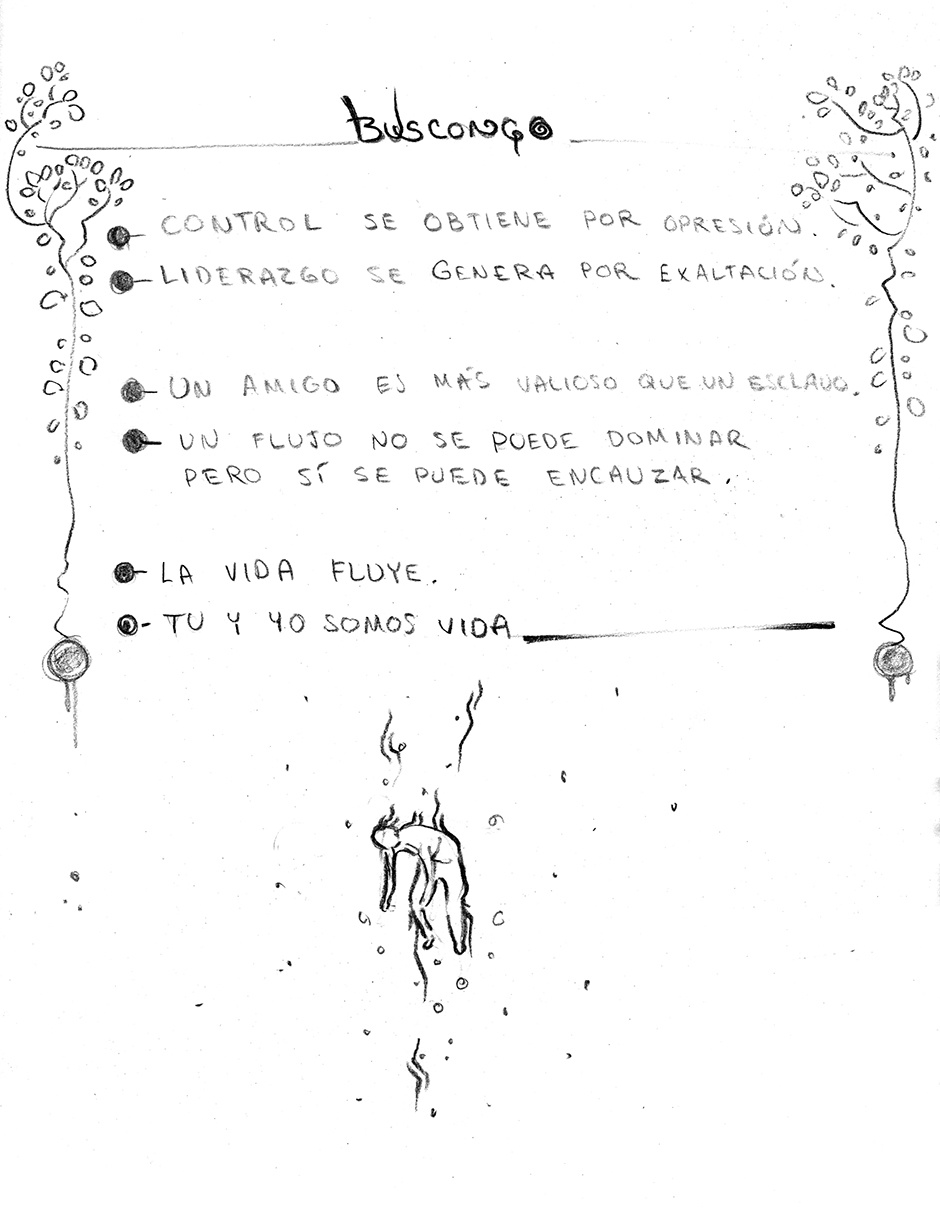 BUSCONGO
CONTROL SE OBTIENE POR OPRESIÓN.
LIDERAZGO SE GENERA POR EXALTACIÓN.
UN AMIGO ES MÁS VALIOSO QUE UN ESCLAVO.
UN FLUJO NO SE PUEDE DOMINAR
PERO SÍ SE PUEDE ENCAUZAR.
LA VIDA FLUYE.
TU Y YO SOMOS VIDA